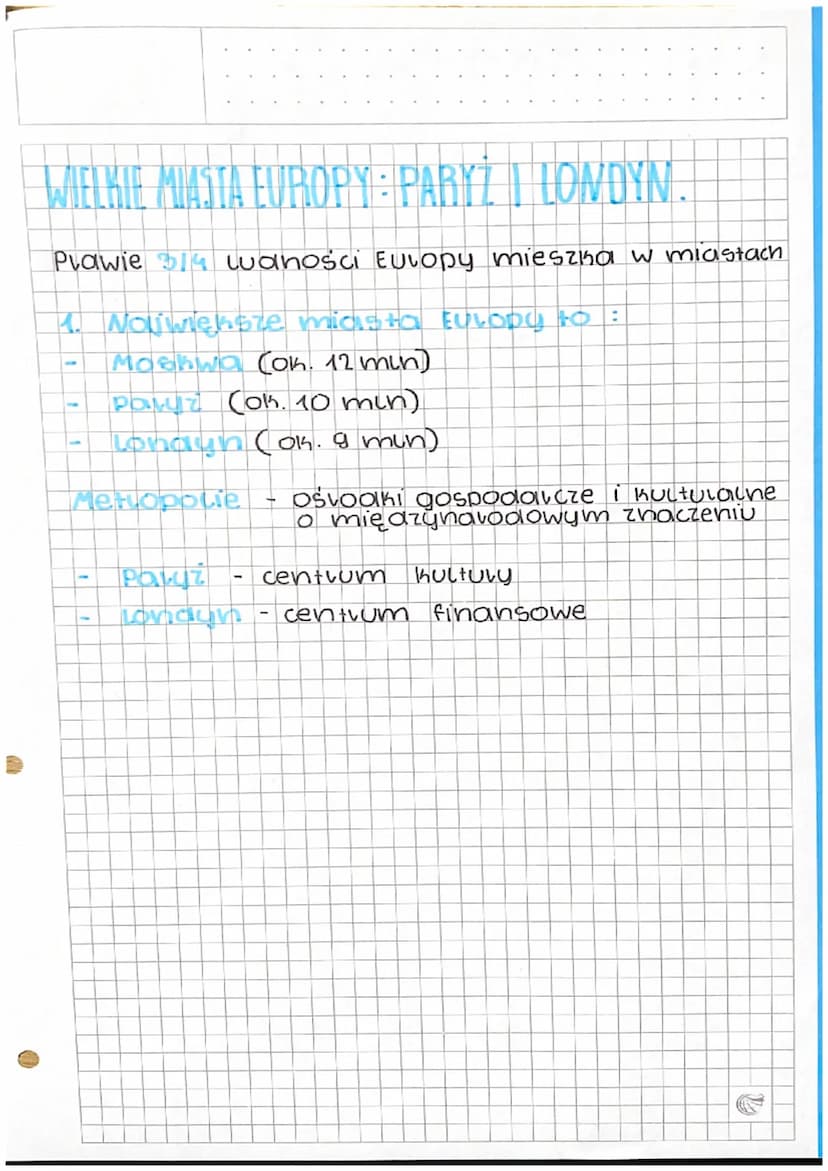 WIELKIE MIASTA EUROPY: PARYŻ I LONDYN.
Prawie 3/4 ludności Europy mieszka w miastach
1. Największe miasta Europy to :
- Moskwa (ok. 12 mln)
- Paryż (ok. 10 mln)
- Londyn (ok. 9 mln)
Metropolie - ośrodki gospodarcze i kulturalne
o międzynarodowym znaczeniu
- Paryż - centrum kultury
- Londyn - centrum finansowe